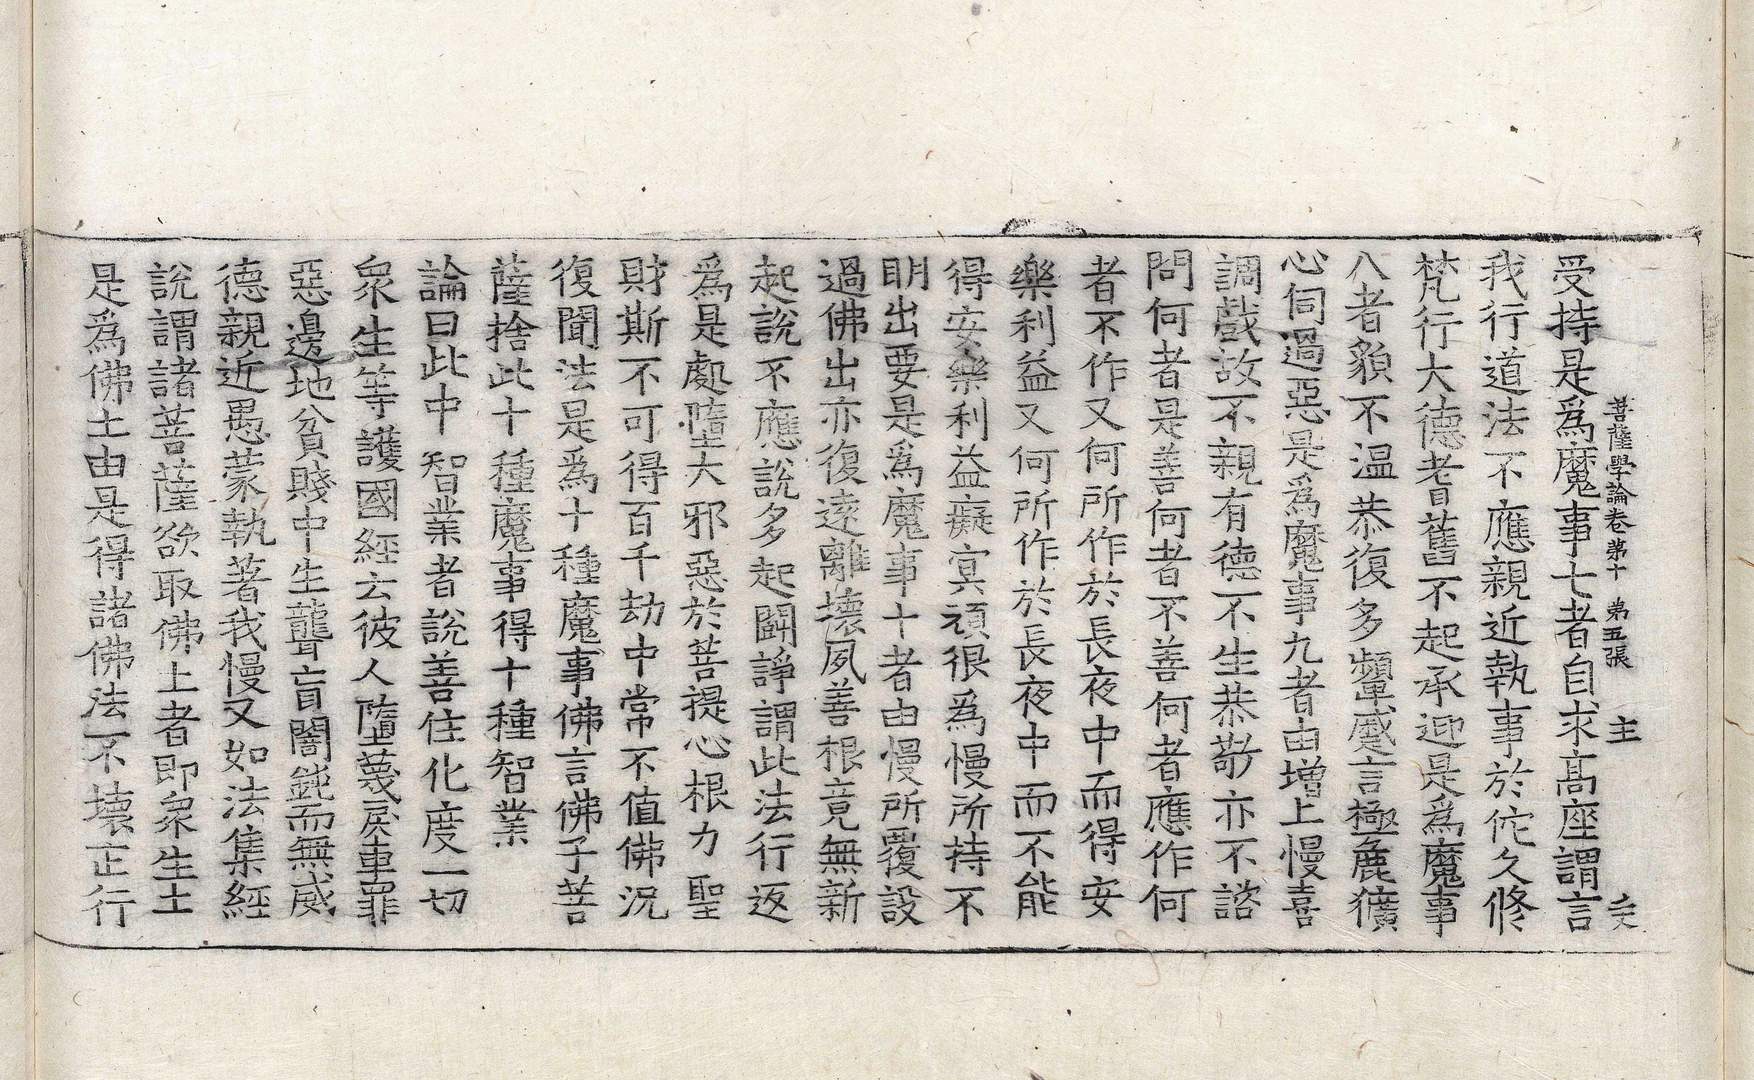 菩薩學論卷第十 第五張 主
受持是爲魔事七者自求高座謂言
我行道法不應親近執事於佗久修
梵行大德耆舊不起承迎是爲魔事
八者貌不温恭復多顰蹙言極麁獷
心伺過惡是爲魔事九者由增上慢喜
調戲故不親有德不生恭敬亦不諮
問何者是善何者不善何者應作何
者不作又何所作於長夜中而得安
樂利益又何所作於長夜中而不能
得安樂利益癡冥頑很為慢所持不
明出要是爲魔事十者由慢所覆設
過佛出亦復遠離壞夙善根竟無新
起說不應說多起鬪諍謂此法行返
爲是處墮大邪惡於菩提心根力聖
財斯不可得百千劫中常不值佛況
復聞法是爲十種魔事佛言佛子菩
薩捨此十種魔事得十種智業
論曰此中智業者說善住化度一切
衆生等護國經云彼人墮蔑戾車罪
惡邊地貧賤中生聾盲闇鈍而無威
德親近愚蒙執著我慢又如法集經
說謂諸菩薩欲取佛土者即衆生土
是爲佛土由是得諸佛法不壞正行